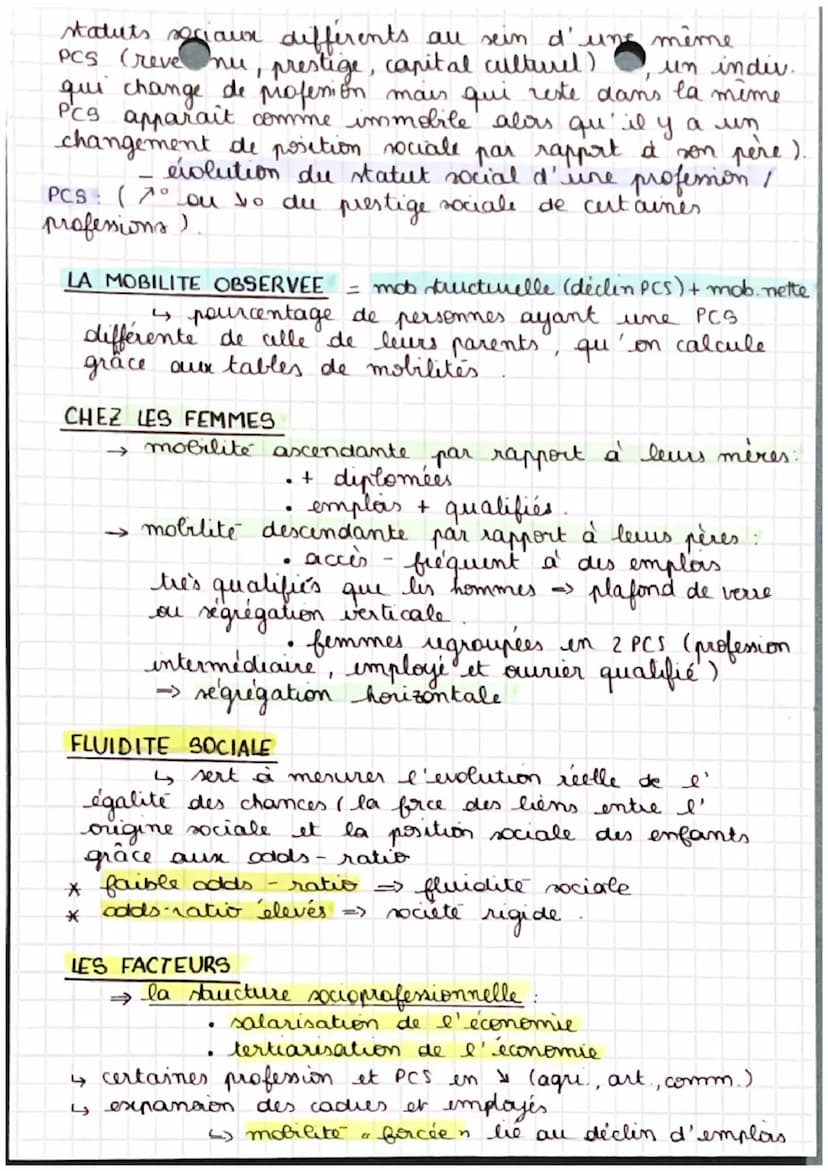 statuts sociaux différents au sein d'une même
PCS (revenu, prestige, capital culturel) , un indiv.
qui change de profession mais qui reste dans la même
PCS apparaît comme immobile alors qu'il y a un
changement de position sociale par rapport à son père).
- évolution du statut social d'une profession /
PCS : (↗° ou ↘° du prestige sociale de certaines
professions).
LA MOBILITE OBSERVEE = mob structurelle (déclin PCS) + mob. nette
↳ pourcentage de personnes ayant une PCS
différente de celle de leurs parents, qu'on calcule
grâce aux tables de mobilités.
CHEZ LES FEMMES
→ mobilité ascendante par rapport à leurs mères :
• + diplomées
• emplois + qualifiés.
→ mobilité descendante par rapport à leurs pères :
• accès - fréquent à des emplois
très qualifiés que les hommes => plafond de verre
ou ségrégation verticale.
• femmes regroupées en 2 PCS (profession
intermédiaire, employé et ouvrier qualifié)
=> ségrégation horizontale
FLUIDITE SOCIALE
↳ sert à mesurer l'évolution réelle de l'
égalité des chances (la force des liens entre l'
origine sociale et la position sociale des enfants
grâce aux odds-ratio
* faible odds-ratio => fluidité sociale
* odds-ratio élevés => société rigide.
LES FACTEURS
=> la structure socioprofessionnelle :
• salarisation de l'économie
• tertiarisation de l'économie
↳ certaines profession et PCS en ↘ (agri., art., comm.)
↳ expansion des cadres et employés
↳ mobilité "forcée" lié au déclin d'emplois